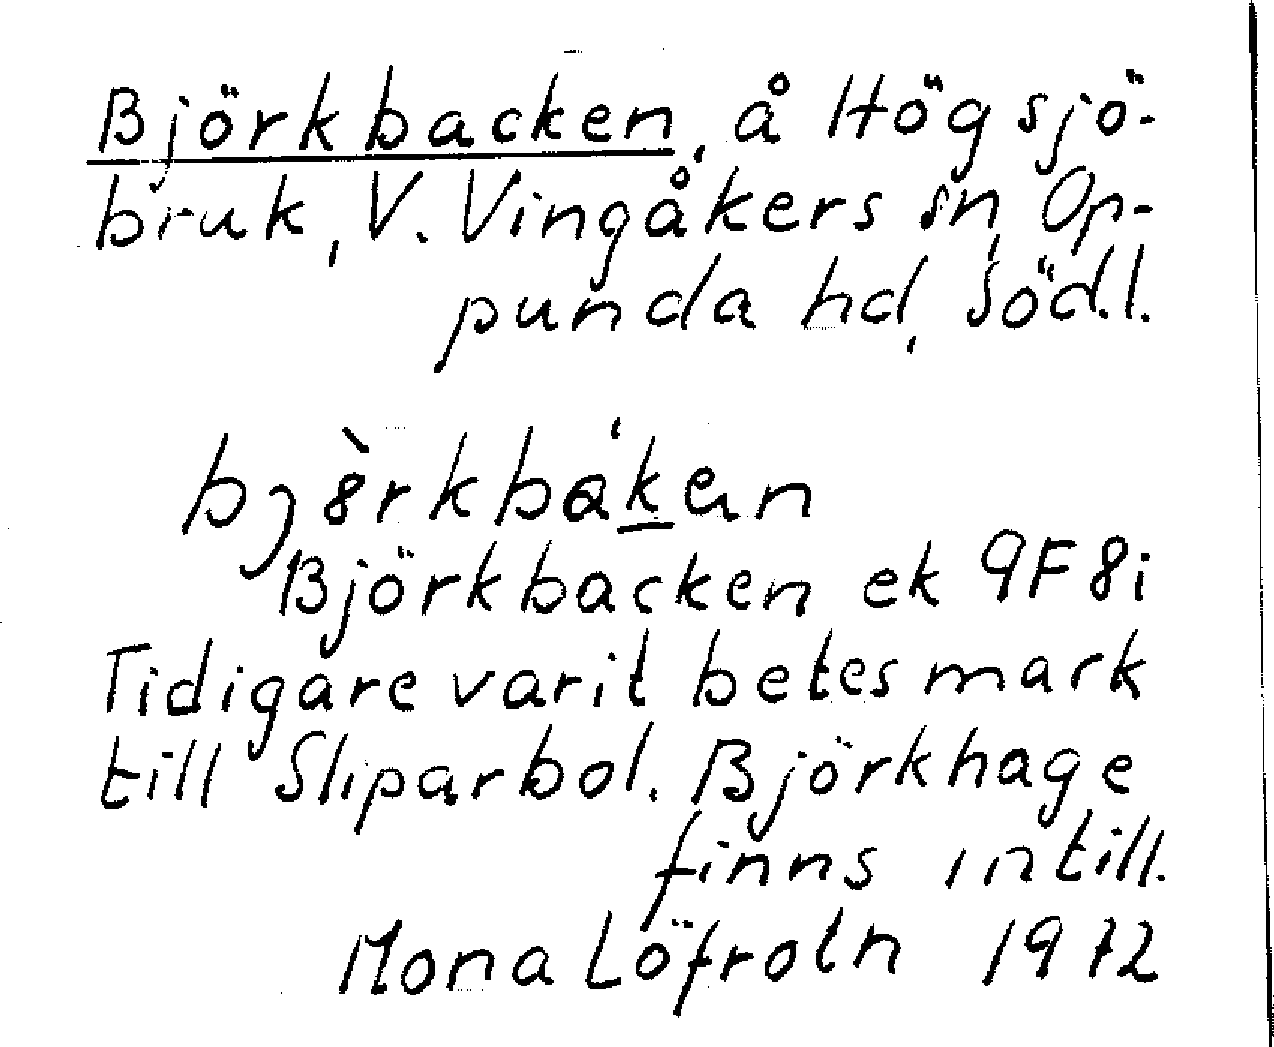 Björkbacken, å Högsjö-
bruk, V. Vingåkers sn, Op-
punda hd, Södl.
bjö̀rkbáken
Björkbacken ek 9F8i
Tidigare varit betesmark
till Sliparbol. Björkhage
finns intill.
Mona Löfroth 1972